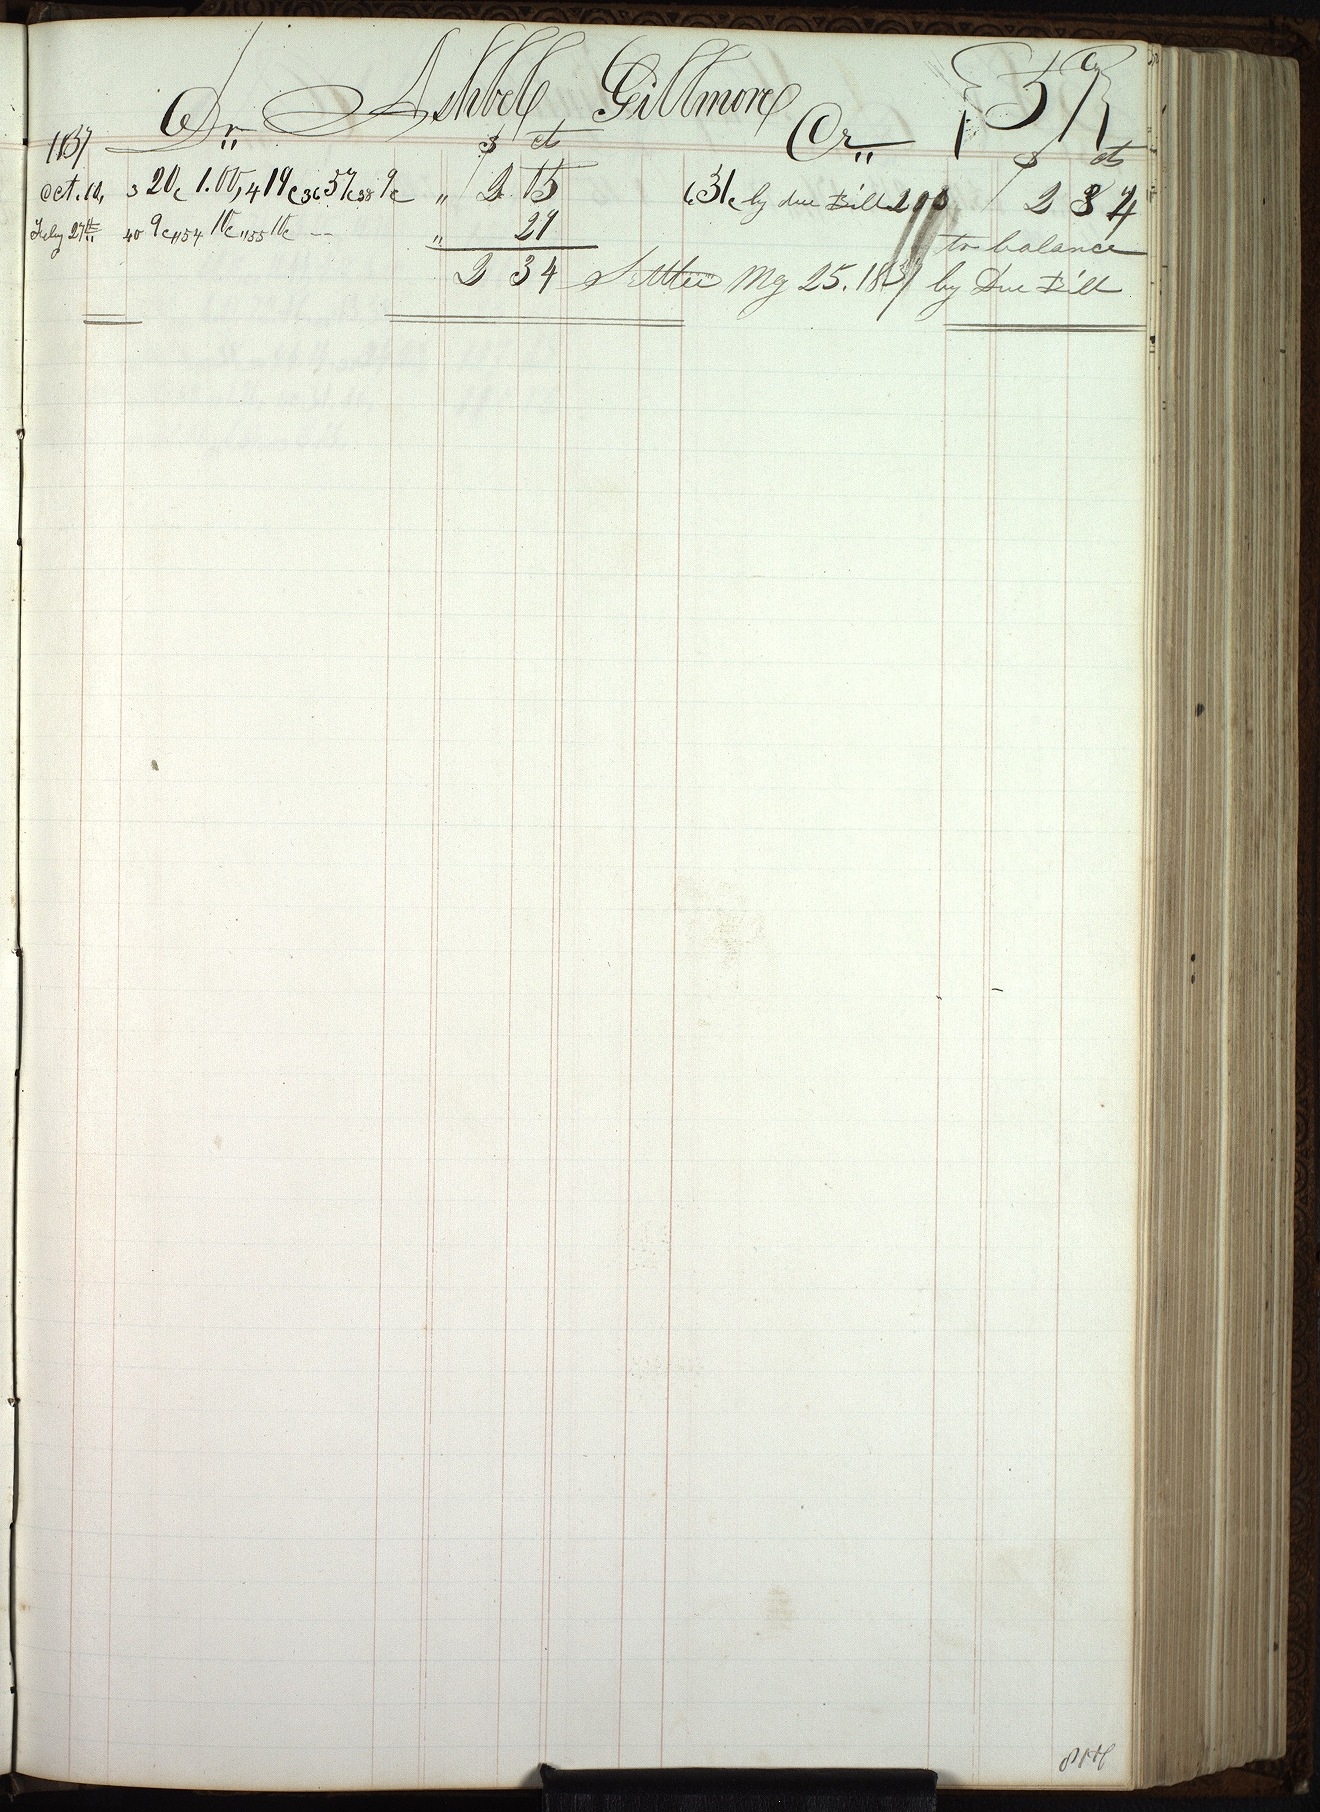 Dr,, Ashbel Gillmore Cr,,
1837 $ ct $ cts
Oct. 10, 3 20c 1.00, 4 19c 36 57c 38 9c ,, 2 05 by due Bill 2 34
Feby 27th 40 9c ,, 54 10c ,, 55 10c -- ,, 29 to balance
2 34 Settled My 25. 1837 by Due Bill